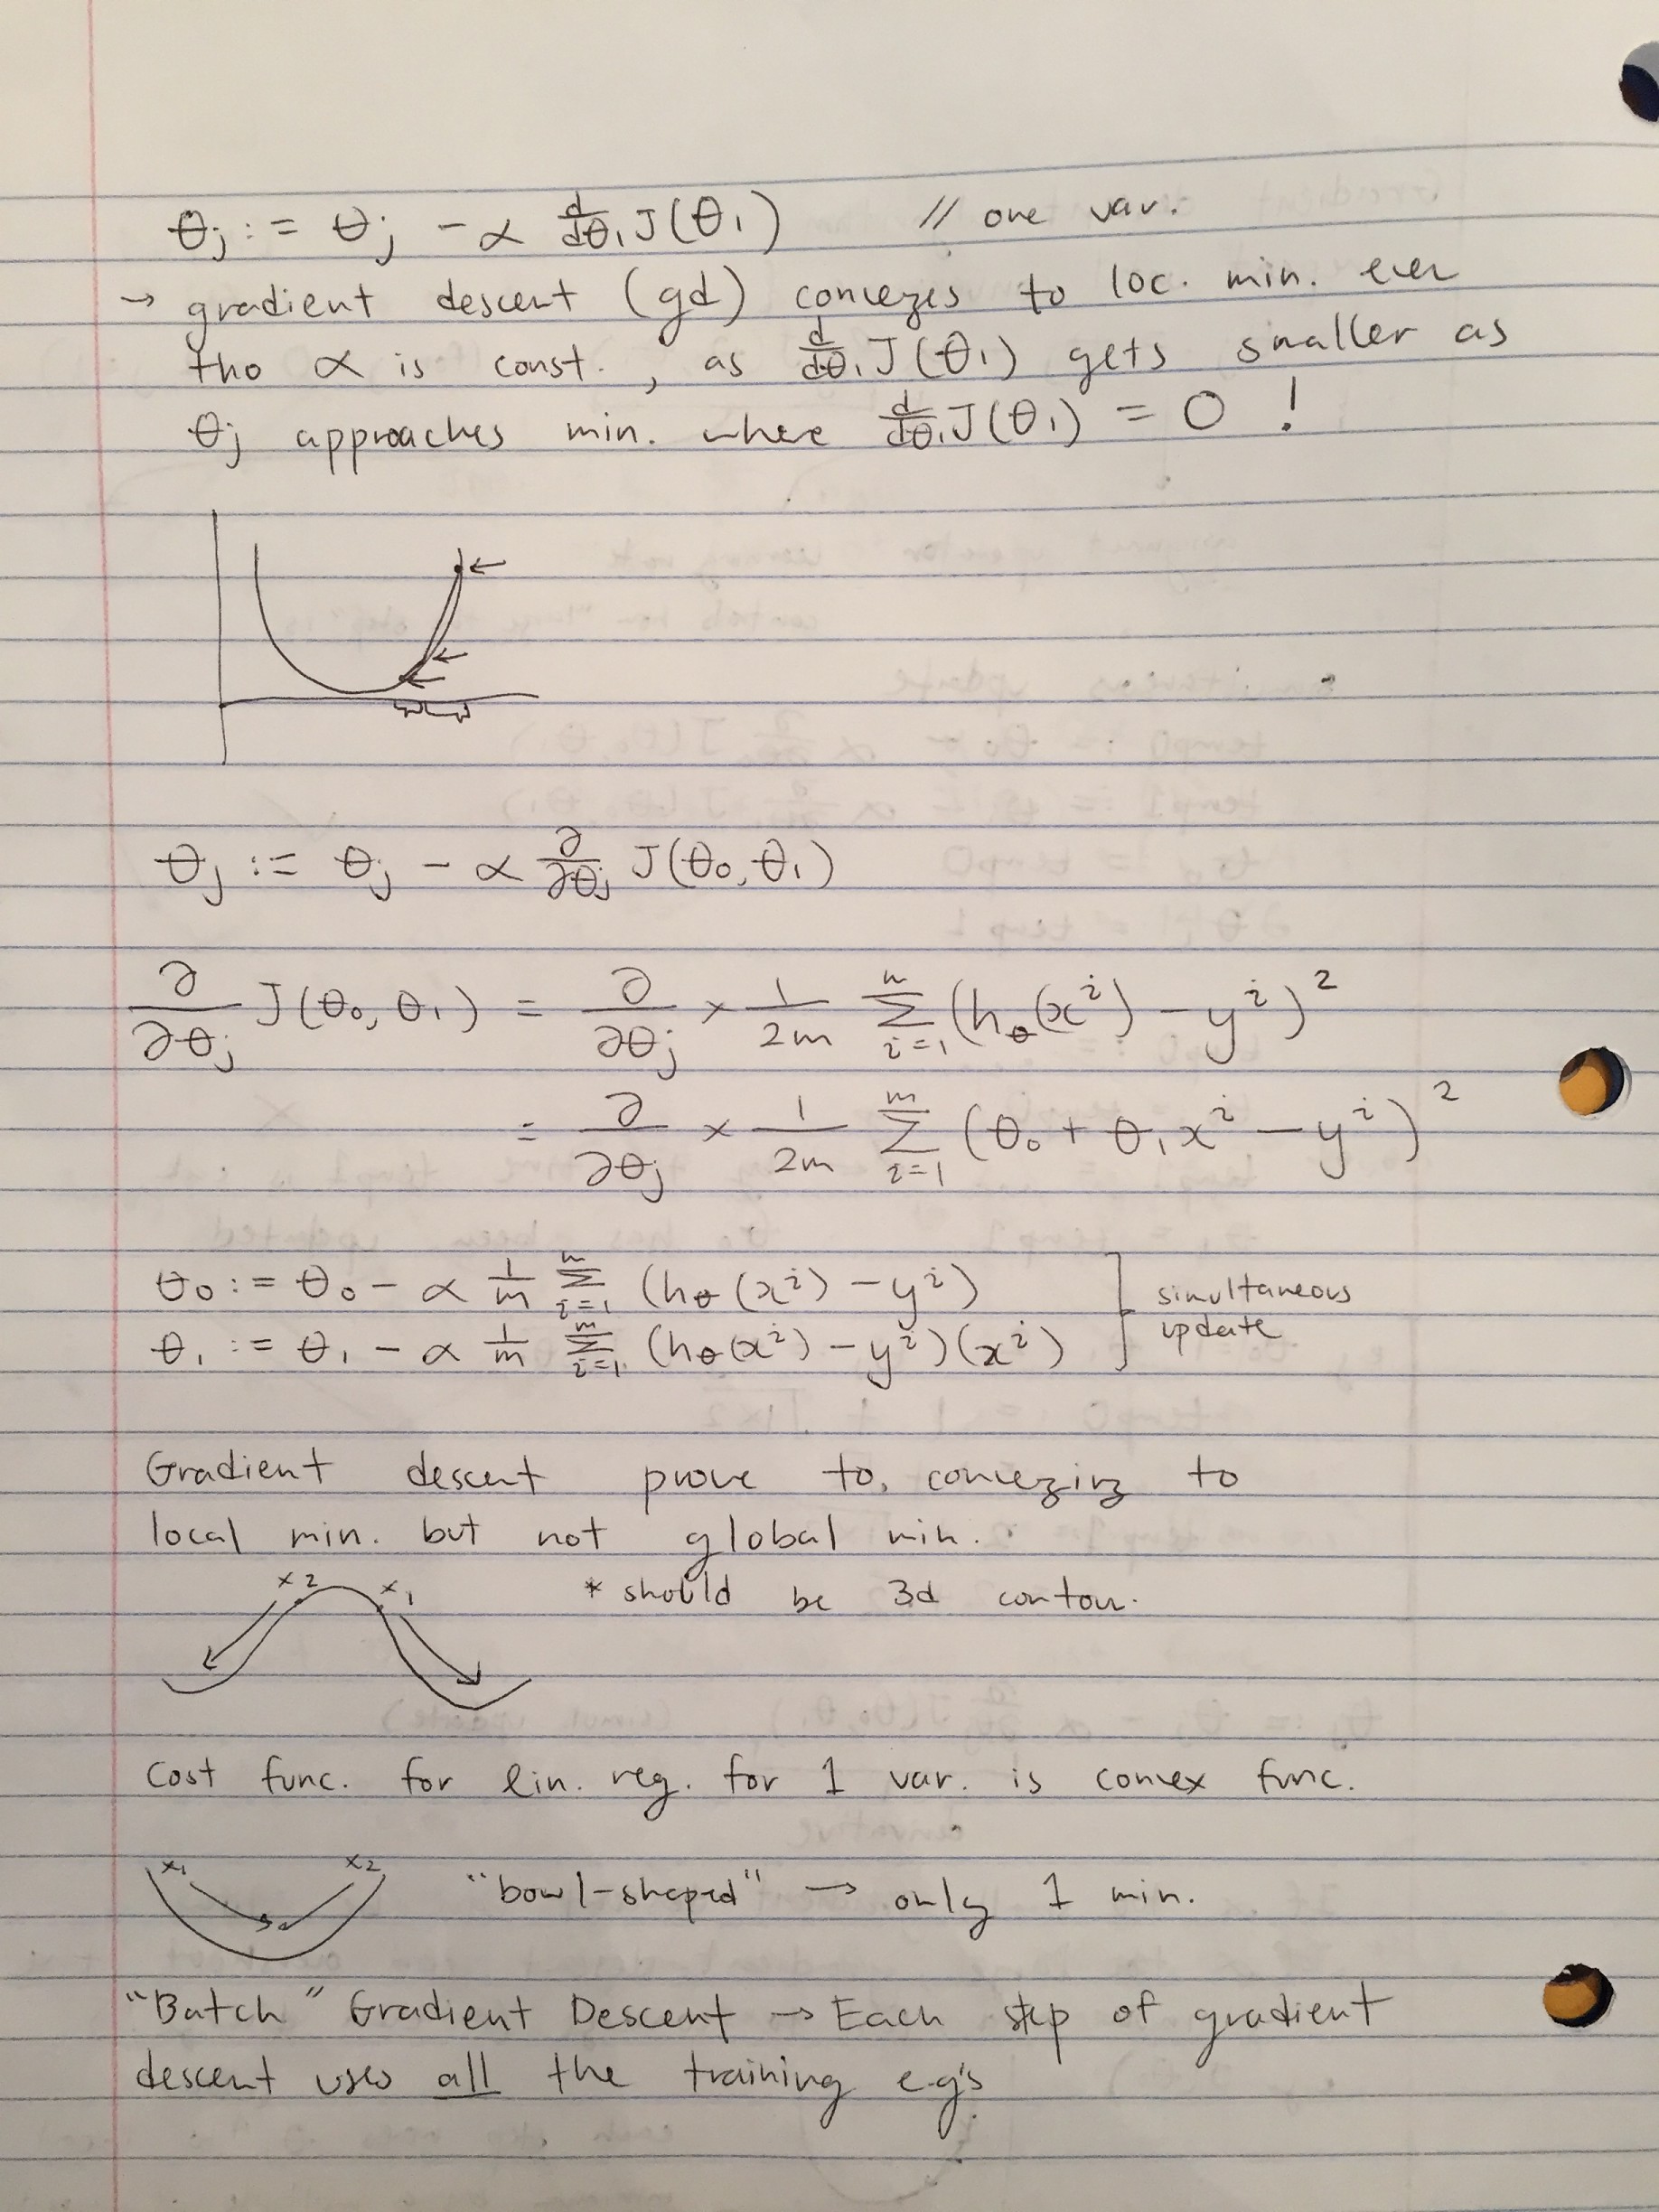 θj := θj - α d/dθ₁ J(θ₁) // one var.
→ gradient descent (gd) converges to loc. min. even
tho α is const., as d/dθ₁ J(θ₁) gets smaller as
θj approaches min. where d/dθ₁ J(θ₁) = 0 !
θj := θj - α ∂/∂θj J(θ₀, θ₁)
∂/∂θj J(θ₀, θ₁) = ∂/∂θj × 1/2m m∑i=1 (hθ(xⁱ) - yⁱ)²
= ∂/∂θj × 1/2m m∑i=1 (θ₀ + θ₁xⁱ - yⁱ)²
θ₀ := θ₀ - α 1/m m∑i=1 (hθ(xⁱ) - yⁱ)
θ₁ := θ₁ - α 1/m m∑i=1 (hθ(xⁱ) - yⁱ)(xⁱ)
simultaneous
update
Gradient descent prove to converging to
local min. but not global min.
x2 x1
* should be 3d contour.
Cost func. for lin. reg. for 1 var. is convex func.
x1 x2
"bowl-shaped" → only 1 min.
"Batch" Gradient Descent → Each step of gradient
descent uses all the training eg's